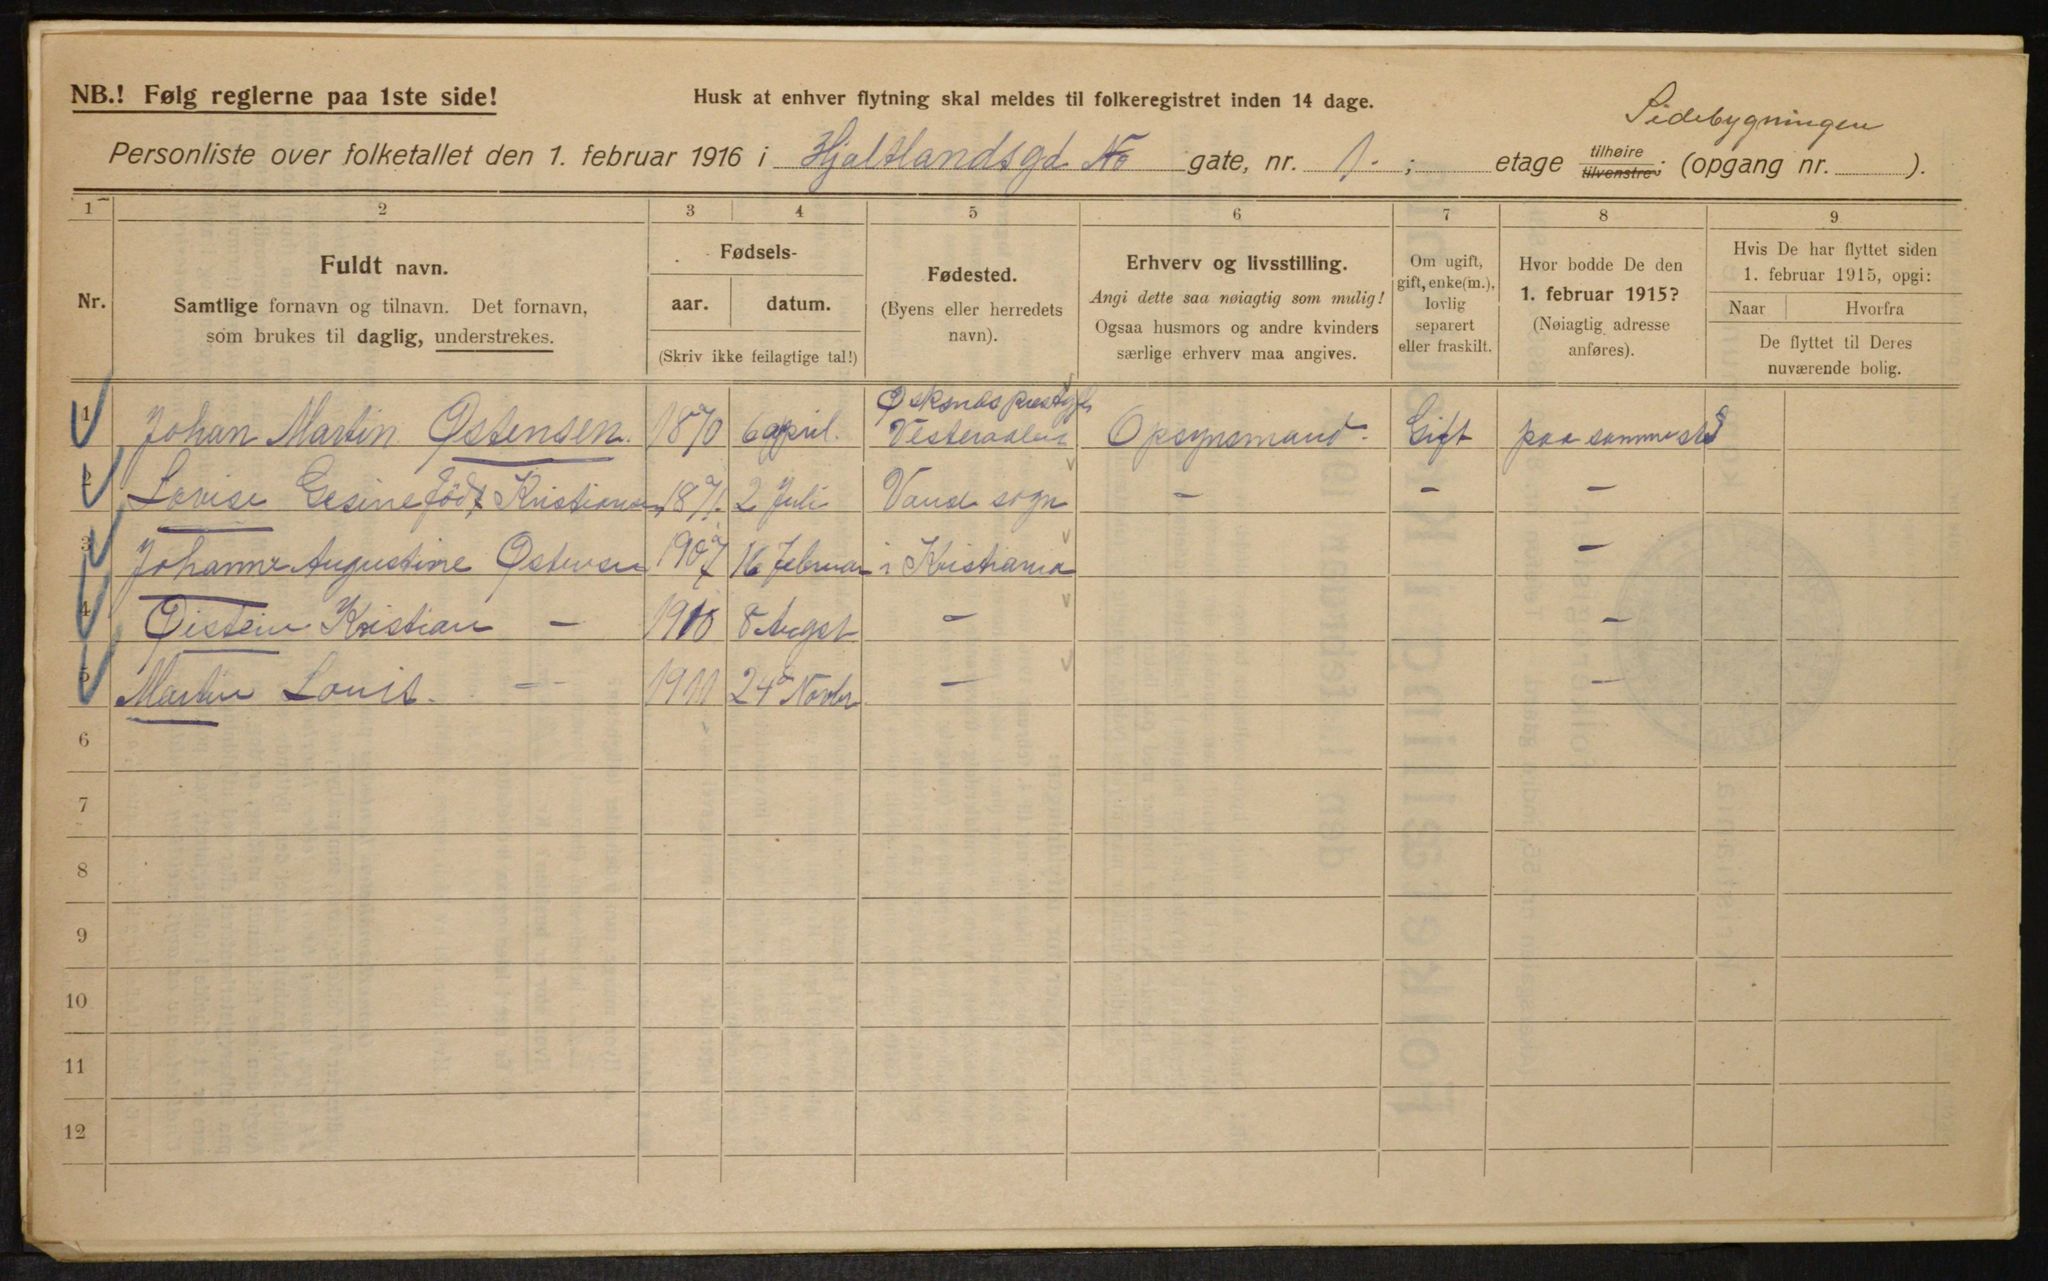 NB.! Følg reglerne paa 1ste side!
Husk at enhver flytning skal meldes til folkeregistret inden 14 dage.
Sidebygningen
Personliste over folketallet den 1. februar 1916 i Hjaltlandsgd No gate, nr. 1. ; etage tilhøire tilvenstre ; (opgang nr. ).
1 2 3 4 5 6 7 8 9
Nr.
Fuldt navn.
Samtlige fornavn og tilnavn. Det fornavn,
som brukes til daglig, understrekes.
Fødsels-
aar. datum.
(Skriv ikke feilagtige tal!)
Fødested.
(Byens eller herredets
navn).
Erhverv og livsstilling.
Angi dette saa nøiagtig som mulig!
Ogsaa husmors og andre kvinders
særlige erhverv maa angives.
Om ugift,
gift, enke(m.),
lovlig
separert
eller fraskilt.
Hvor bodde De den
1. februar 1915?
(Nøiagtig adresse
anføres).
Hvis De har flyttet siden
1. februar 1915, opgi:
Naar Hvorfra
De flyttet til Deres
nuværende bolig.
1 Johan Martin Østensen. 1870 6 april. Øksnes prestgj Vesteraalen Opsynsmand. Gift paa samme std
2 Lovise Gesine født Kristiansen 1871. 2 Juli Vanse sogn - - -
3 Johanne Augustine Østensen 1907 16 Februar i Kristiania -
4 Øistein Kristian - 1910 8 Augst - -
5 Martin Louis. - 1911 24 Novbr - -
6
7
8
9
10
11
12